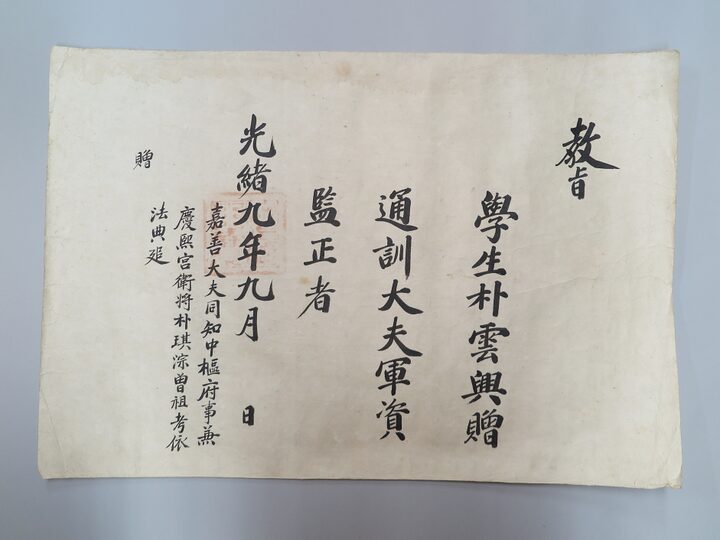 教旨
學生朴雲興贈
通訓大夫軍資
監正者
光緒九年九月 日
嘉善大夫同知中樞府事兼
慶熙宮衛將朴琪淙曾祖考依
法典追
贈